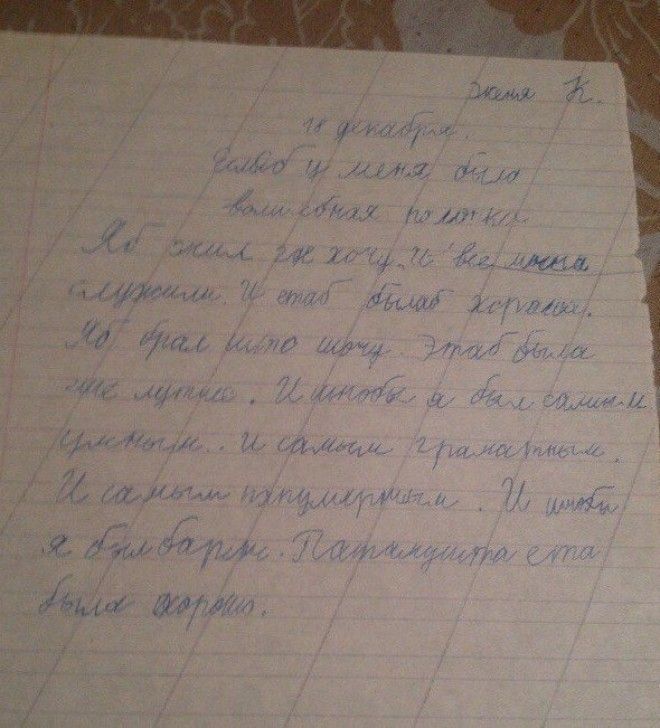 Женя К.
18 декабря.
Еслиб у меня была
волшебная палочка
Яб жил где хочу. И все мнена
служили. И етаб былаб хорошо.
Яб брал што шочу. Этаб была
мне лутше. И штобы я был самым
умным.. и самым граматным.
И самым папулярным. И штобы
я был барин. Патамушта ета
была хорошо.